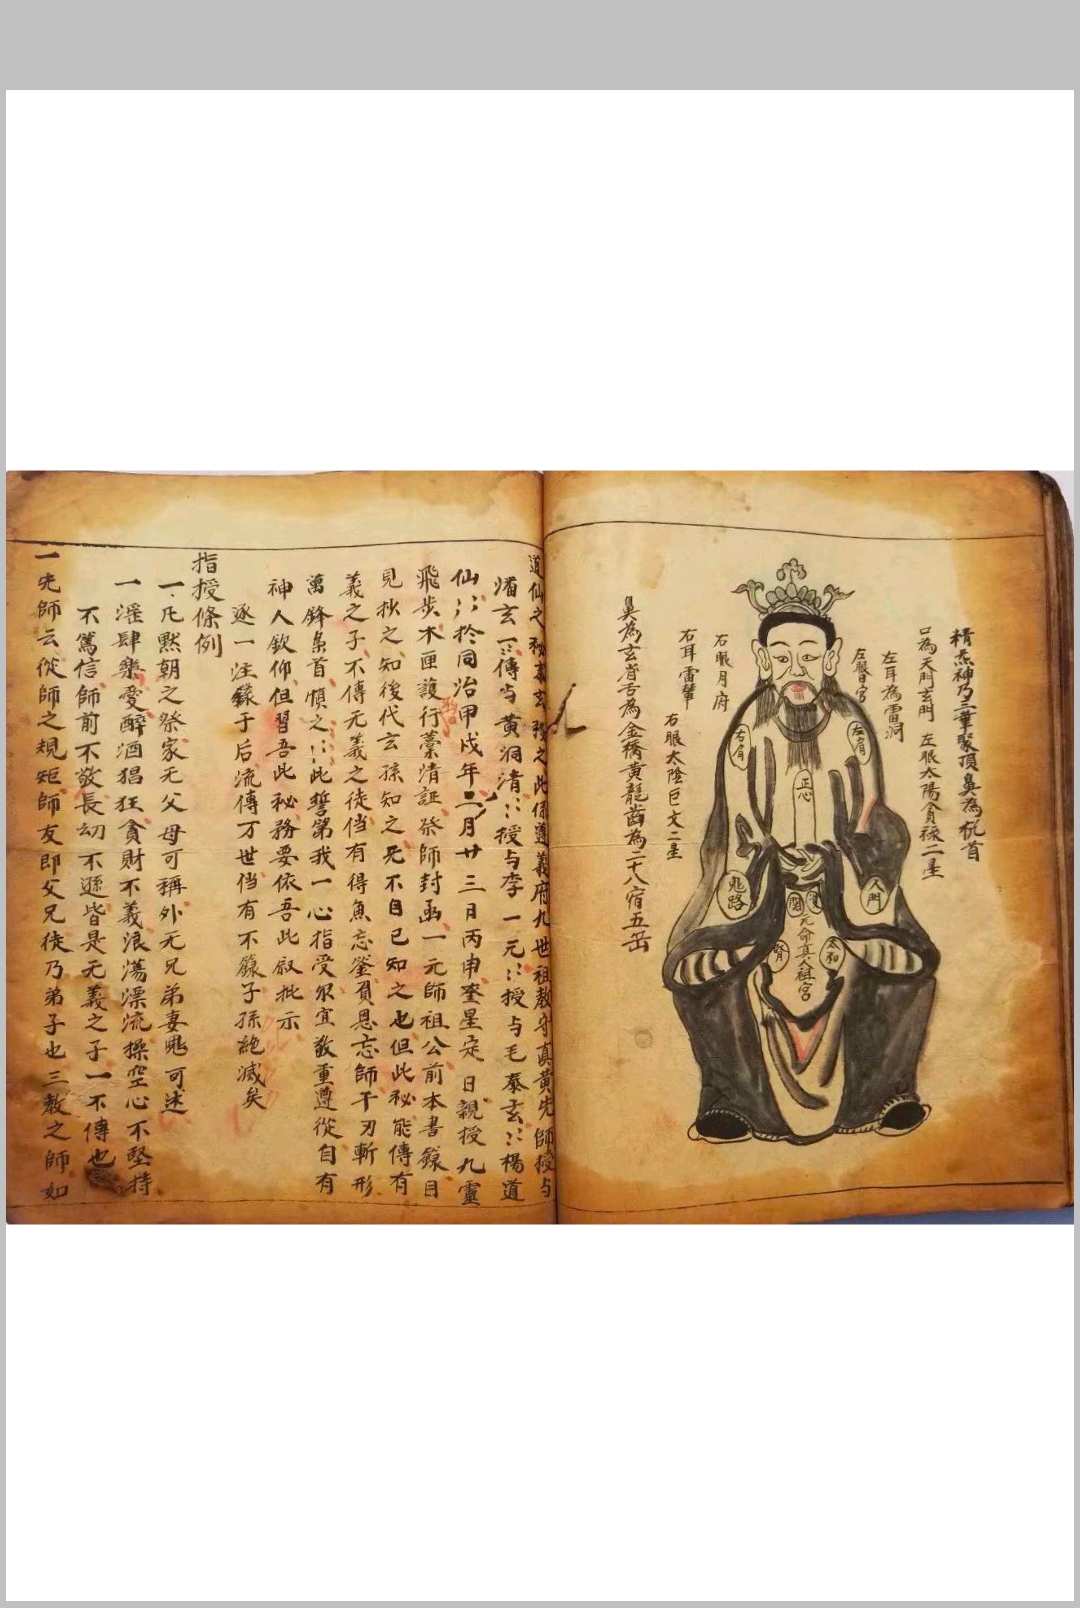 精炁神乃三華聚頂鼻為杭首
口為天門玄門 左眼太陽貪祿二星
左耳為雷洞
左腎日宮
右眼月府
右耳雷鞏
右眼太陰巨文二星
鼻為玄育舌為金橋黃龍齒為二十八宿五岳
左肩
右肩
正心
人門
兆路
關
元命真人祖宮
太和
腎
道仙之秘 玄 之此係遵義府九世祖教守真黃先師授与
潘玄一:傳与黃洞清::授与李一元::授与毛泰玄::楊道
仙::於同治甲戍年二月廿三月丙申奎星定日親授九靈
飛步木匣護行藁清証祭師封函一元師祖公前本書錄目
見抄之知後代玄孫知之死不自已知之也但此秘能傳有
義之子不傳无義之徒倘有得魚忘筌負恩忘師千刃斬形
萬鋒梟首慎之::此誓第我一心指受尔宜敬重遵從自有
神人欽仰但習吾此秘務要依吾此叙批示
逐一注錄于后流傳万世倘有不錄子孫絶滅矣
指授條例
一凡黙朝之祭家无父母可稱外无兄弟妻兆可述
一滛肆樂愛醉酒猖狂貪財不義浪蕩漂流操空心不堅持
不篤信師前不敬長㓜不遜皆是无義之子一不傳也
一先師云從師之規矩師友即父兄徒乃弟子也三教之師如